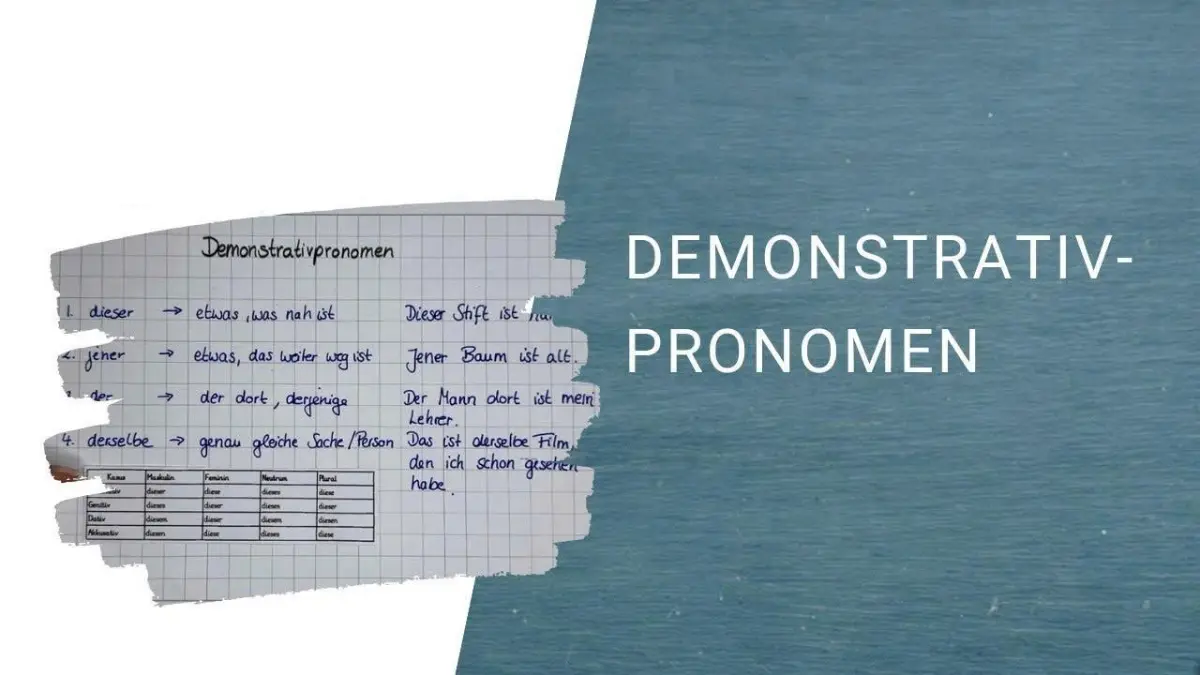 Demonstrativpronomen
1. dieser → etwas, was nah ist Dieser Stift ist
2. jener → etwas, das weiter weg ist Jener Baum ist alt.
der → der dort, derjenige Der Mann dort ist mein
Lehrer.
4. derselbe → genau gleiche Sache/Person Das ist derselbe Film,
den ich schon gesehen
habe.
Kasus Maskulin Feminin Neutrum Plural
dieser diese dieses diese
Genitiv dieses dieser dieses dieser
Dativ diesem dieser diesem diesen
Akkusativ diesen diese dieses diese
DEMONSTRATIV-
PRONOMEN